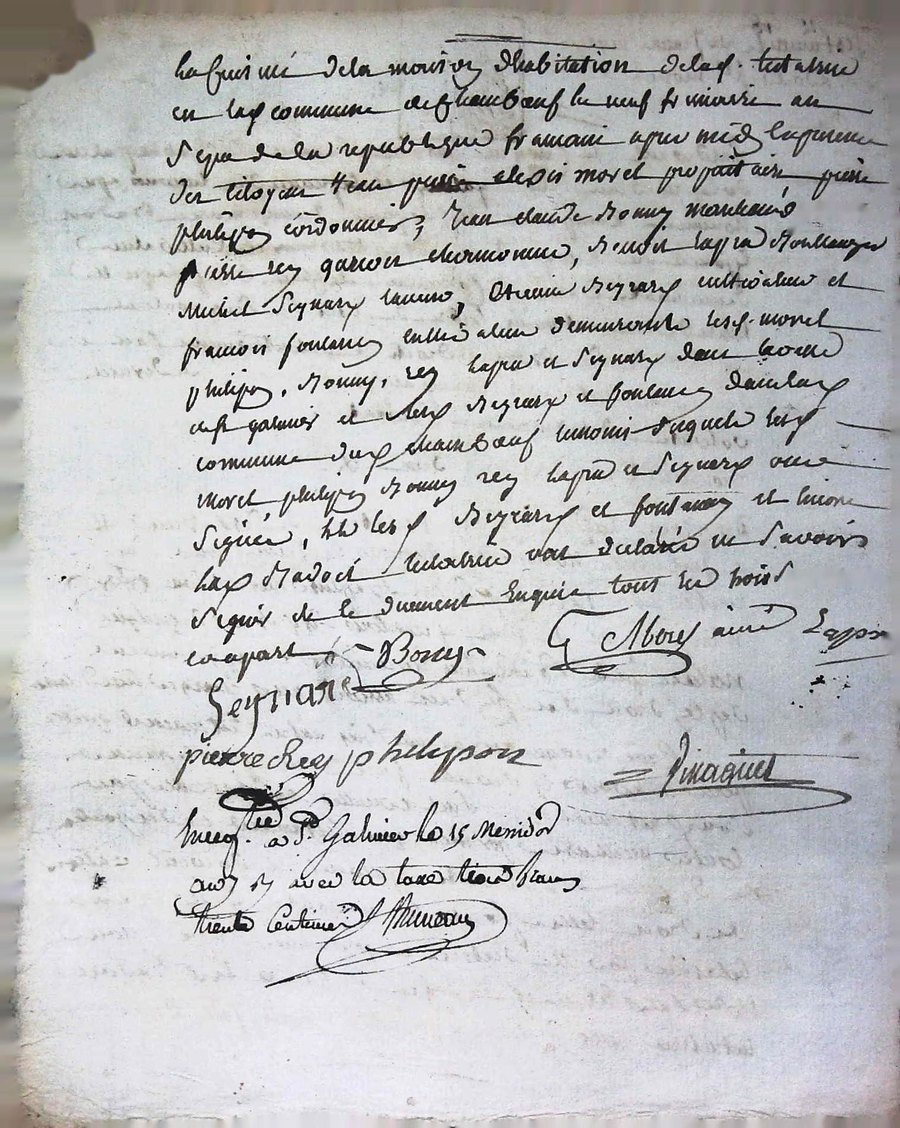 la cuisine de la maison d'habitation de lad. testatrice
en lad commune de Chambœuf le neuf frimaire an
Sept de la republique francaise apres midy En presence
des citoyens Jean alexis morel propriétaire pierre
philipon cordonnier, Jean claude Bonny marchand
pierre rey garcon chamoineur, Benoit lapra Boullanger
Michel Seynard, Etienne Beyrard cultivateur et
francois fontaney cultivateur demeurants lesd. morel
philipon, Bonny, rey lapra et Seynard dans la commune
de St galmier et lesd Beyrard et fontaney dans lad
commune dud Chambœuf temoins desquels lesd
morel, philipon Bonny rey lapra et Seynard ont
Signé, et lesd Beyrard et fontaney et encore
lad testatrice ont declaré ne Scavoir
Signer de ce duement Enquis tous les trois
a part Bony Morel ainé Lapra
Seynard
pierre Rey philypon
Pinaguet
Enreg. à St Galmier le 15 Messidor
an 7 avec la taxe trois francs
trente Centimes